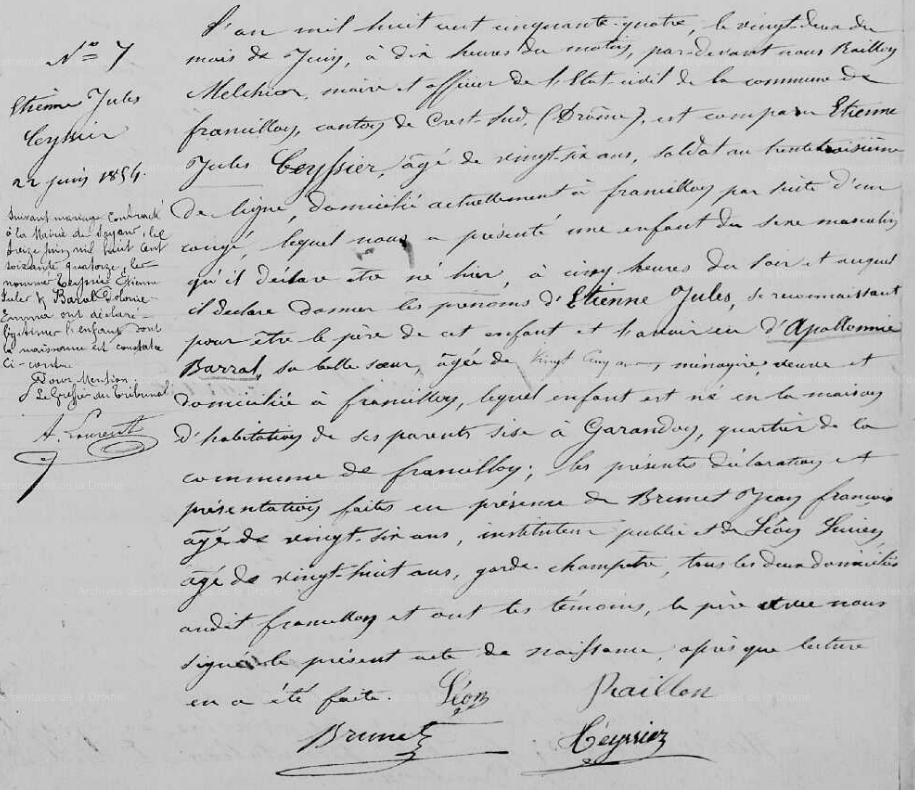 N° 7
Etienne Jules
Ceyssier
22 juin 1854.
Suivant mariage contracté
à la Mairie de Soyans, le
treize juin mil huit cent
soixante quatorze, les
nommés Teyssier Etienne
Jules & Baral
Emma ont déclaré
légitimer l'enfant dont
la naissance est constatée
ci-contre.
Pour Mention
Le Greffier du tribunal
A. Laurent
L'an mil huit cent cinquante-quatre, le vingt-deux du
mois de Juin, à dix heures du matin, par-devant nous Raillon
Melchior, maire et officier de l'Etat-civil de la commune de
francillon, canton de Crest-Sud, (Drôme), est comparu Etienne
Jules Ceyssier, âgé de vingt-six ans, soldat au trente troisième
de ligne, domicilié actuellement à francillon par suite d'un
congé, lequel nous a présenté une enfant du sexe masculin
qu'il déclare être né hier, à cinq heures du soir et auquel
il déclare donner les prénoms d'Etienne Jules, se reconnaissant
pour être le père de cet enfant et l'avoir eu d'Apollonnie
Barral, sa belle sœur, âgée de vingt cinq ans, ménagère, veuve et
domiciliée à francillon, lequel enfant est né en la maison
d'habitation de ses parents sise à Garandon, quartier de la
commune de francillon; les présentes déclaration et
présentation faites en présence de Brunet Jean françois
âgé de vingt-six ans, instituteur public et de Léon Lucien,
âgé de vingt-huit ans, garde champêtre, tous les deux domiciliés
audit francillon et ont les témoins, le père avec nous
signé le présent acte de naissance, après que lecture
en a été faite. Léon Raillon
Brunet Ceyssier
Archives départementales de la Drôme